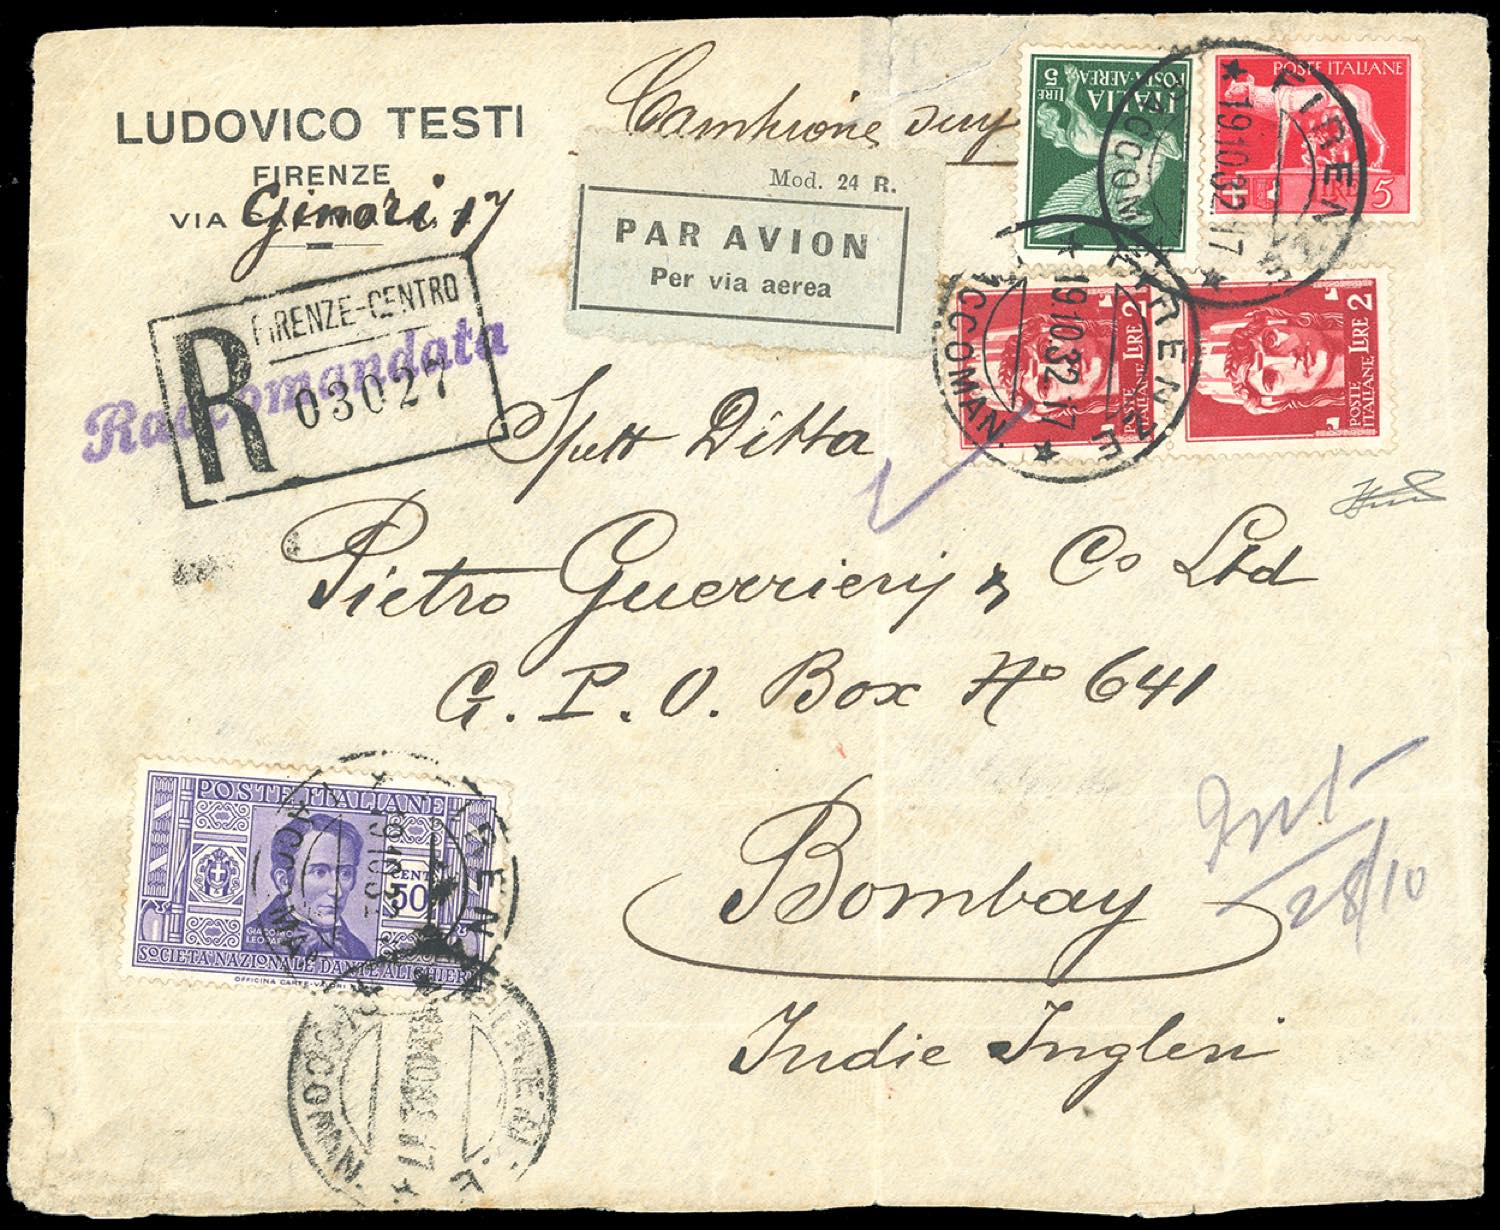 LUDOVICO TESTI
FIRENZE
VIA Ginori 17
Mod. 24 R.
PAR AVION
Per via aerea
R
FIRENZE-CENTRO
03027
Raccomandata
LIRE 5
ITALIA
POSTA-AEREA
POSTE ITALIANE
LIRE 5
FIRENZE
RACCOMAN.
19.10.32.17
POSTE
ITALIANE LIRE 2
FIRENZE
RACCOMAN.
19.10.32.17
POSTE
ITALIANE LIRE 2
Spett Ditta
Pietro Guerrieri & Co Ltd
G. P. O. Box No 641
Bombay
Indie Inglesi
28/10
POSTE ITALIANE
CENT
50
GIACOMO
LEOPARDI
SOCIETÀ NAZIONALE DANTE ALIGHIERI
OFFICINA CARTE-VALORI